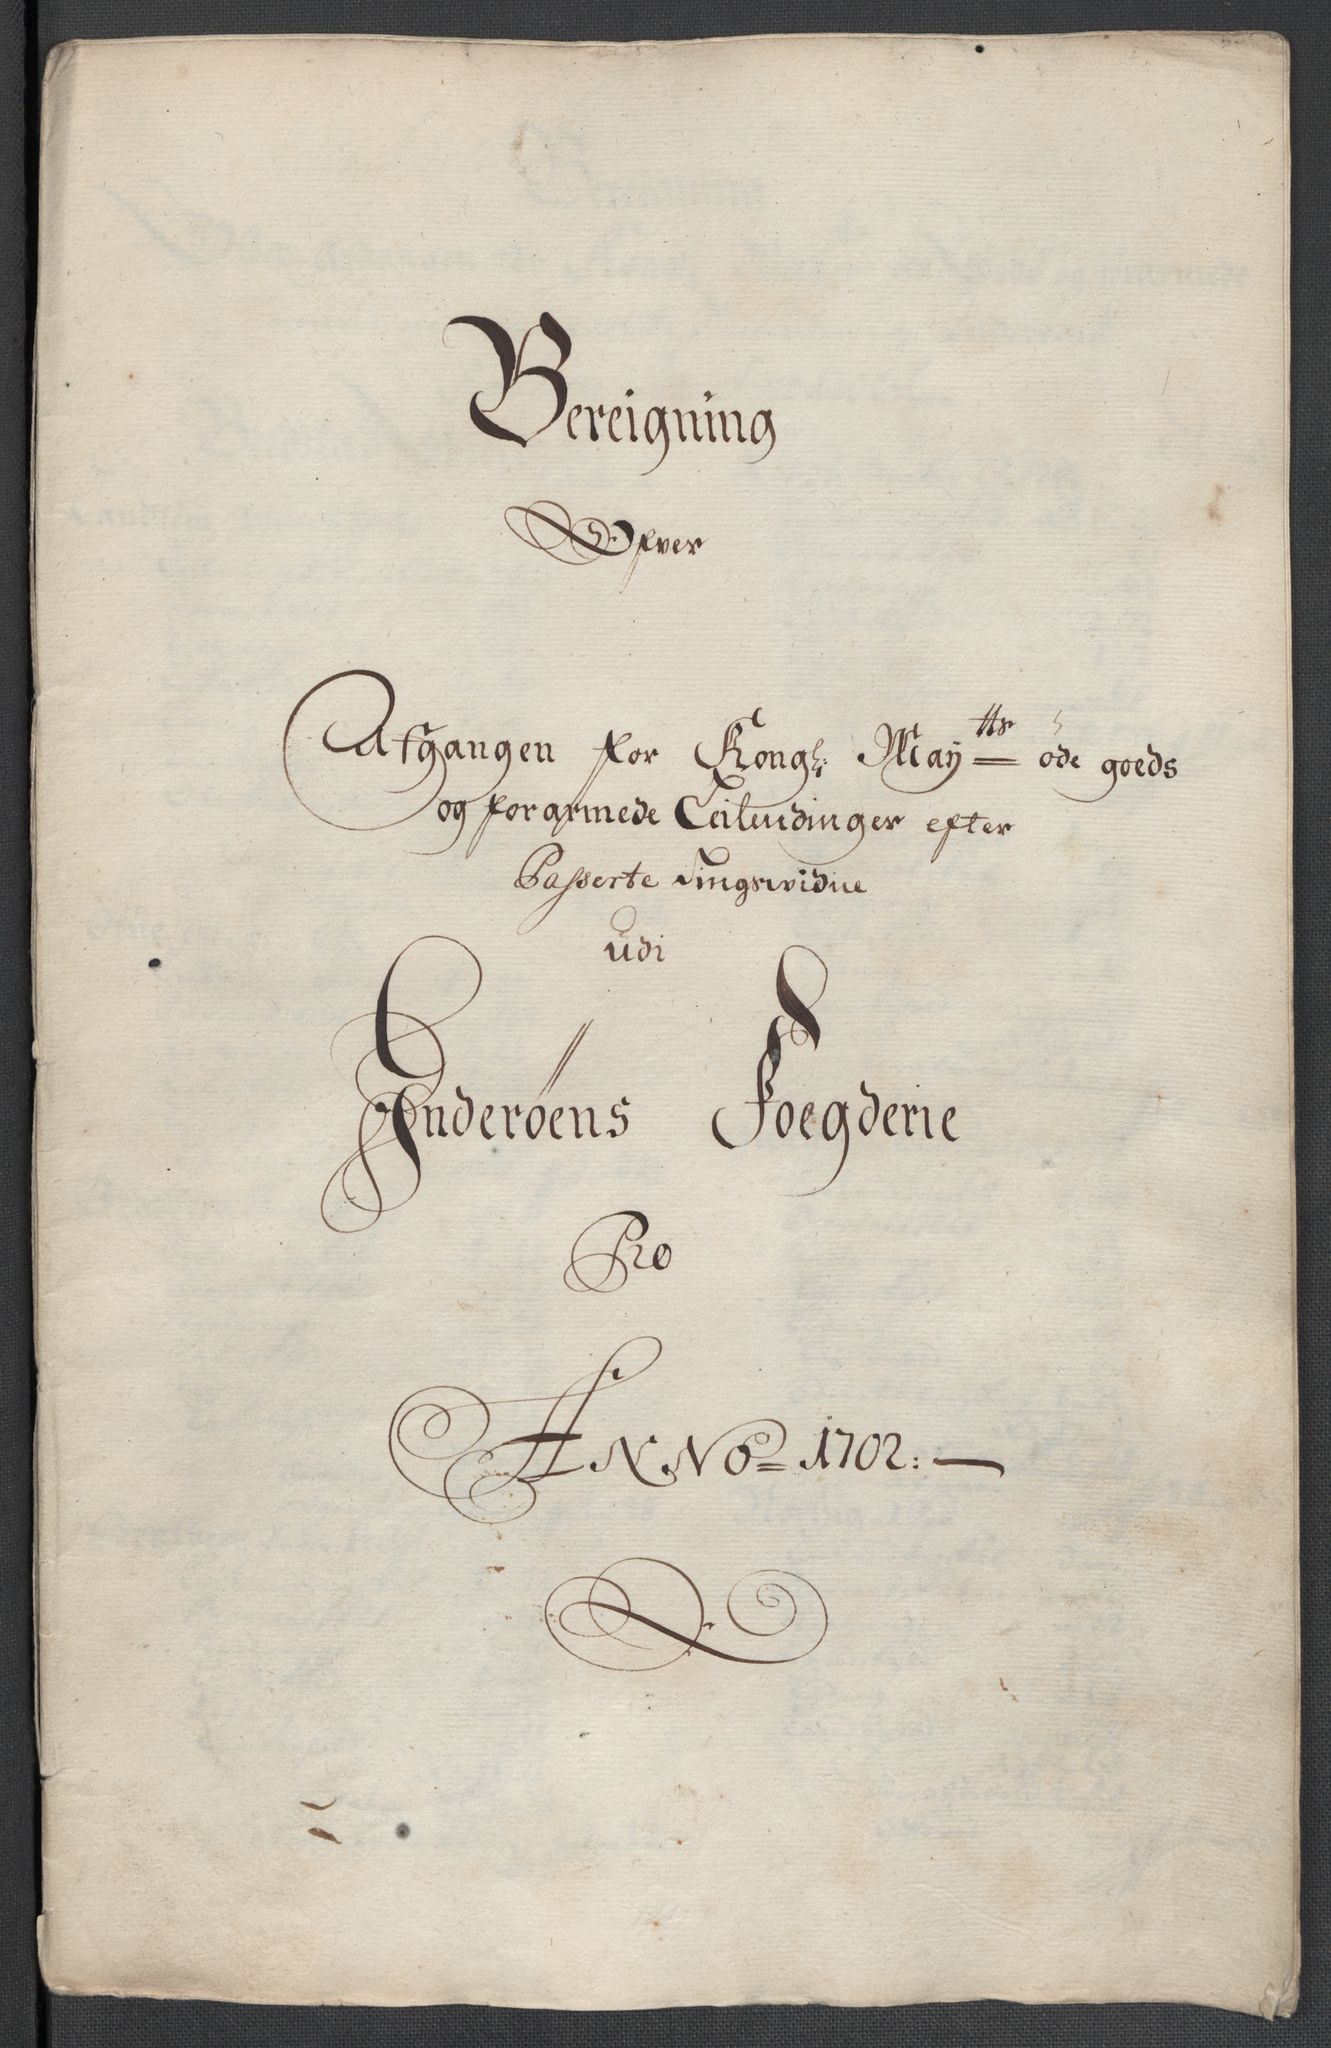 Bereigning
Ofver
Afgangen for Kongl: Maytts öde goeds
og forarmede Leilendinger efter
Passerte tingswidne
udi
Inderöens Foegderie
Pro
ANNO 1702: